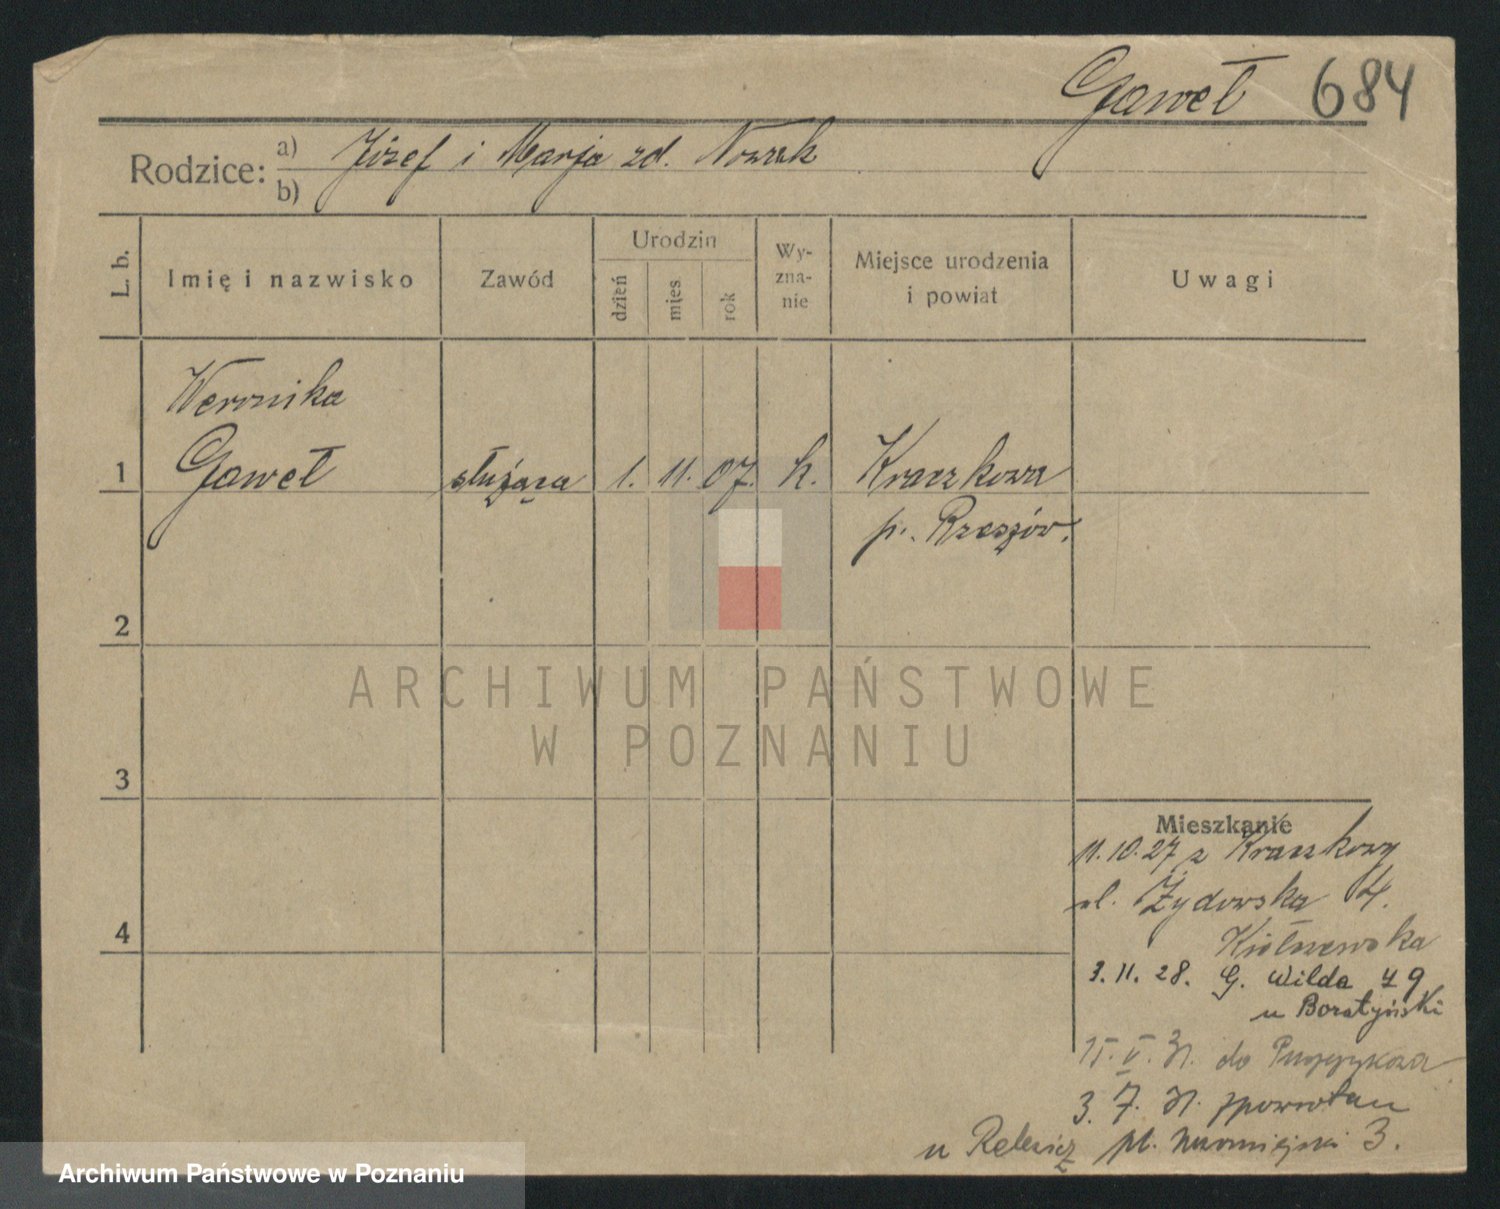 Gaweł 684
Rodzice: a) Józef i Marja zd. Nowak
b)
L. b. Imię i nazwisko Zawód Urodzin dzień mies rok Wyznanie Miejsce urodzenia i powiat Uwagi
Weronika
1 Gaweł służąca 1. 11. 07. k. Kraczkowa
p. Rzeszów.
2
3
4
ARCHIWUM PAŃSTWOWE
W POZNANIU
Mieszkanie
11.10.27 z Kraczkowy
ul. Żydowska 4.
3. 11. 28. G. Wilda 79
u Boratyński
15. V. 31. do
3. 7. 31. zpowrotem
u pl. 3.
Archiwum Państwowe w Poznaniu